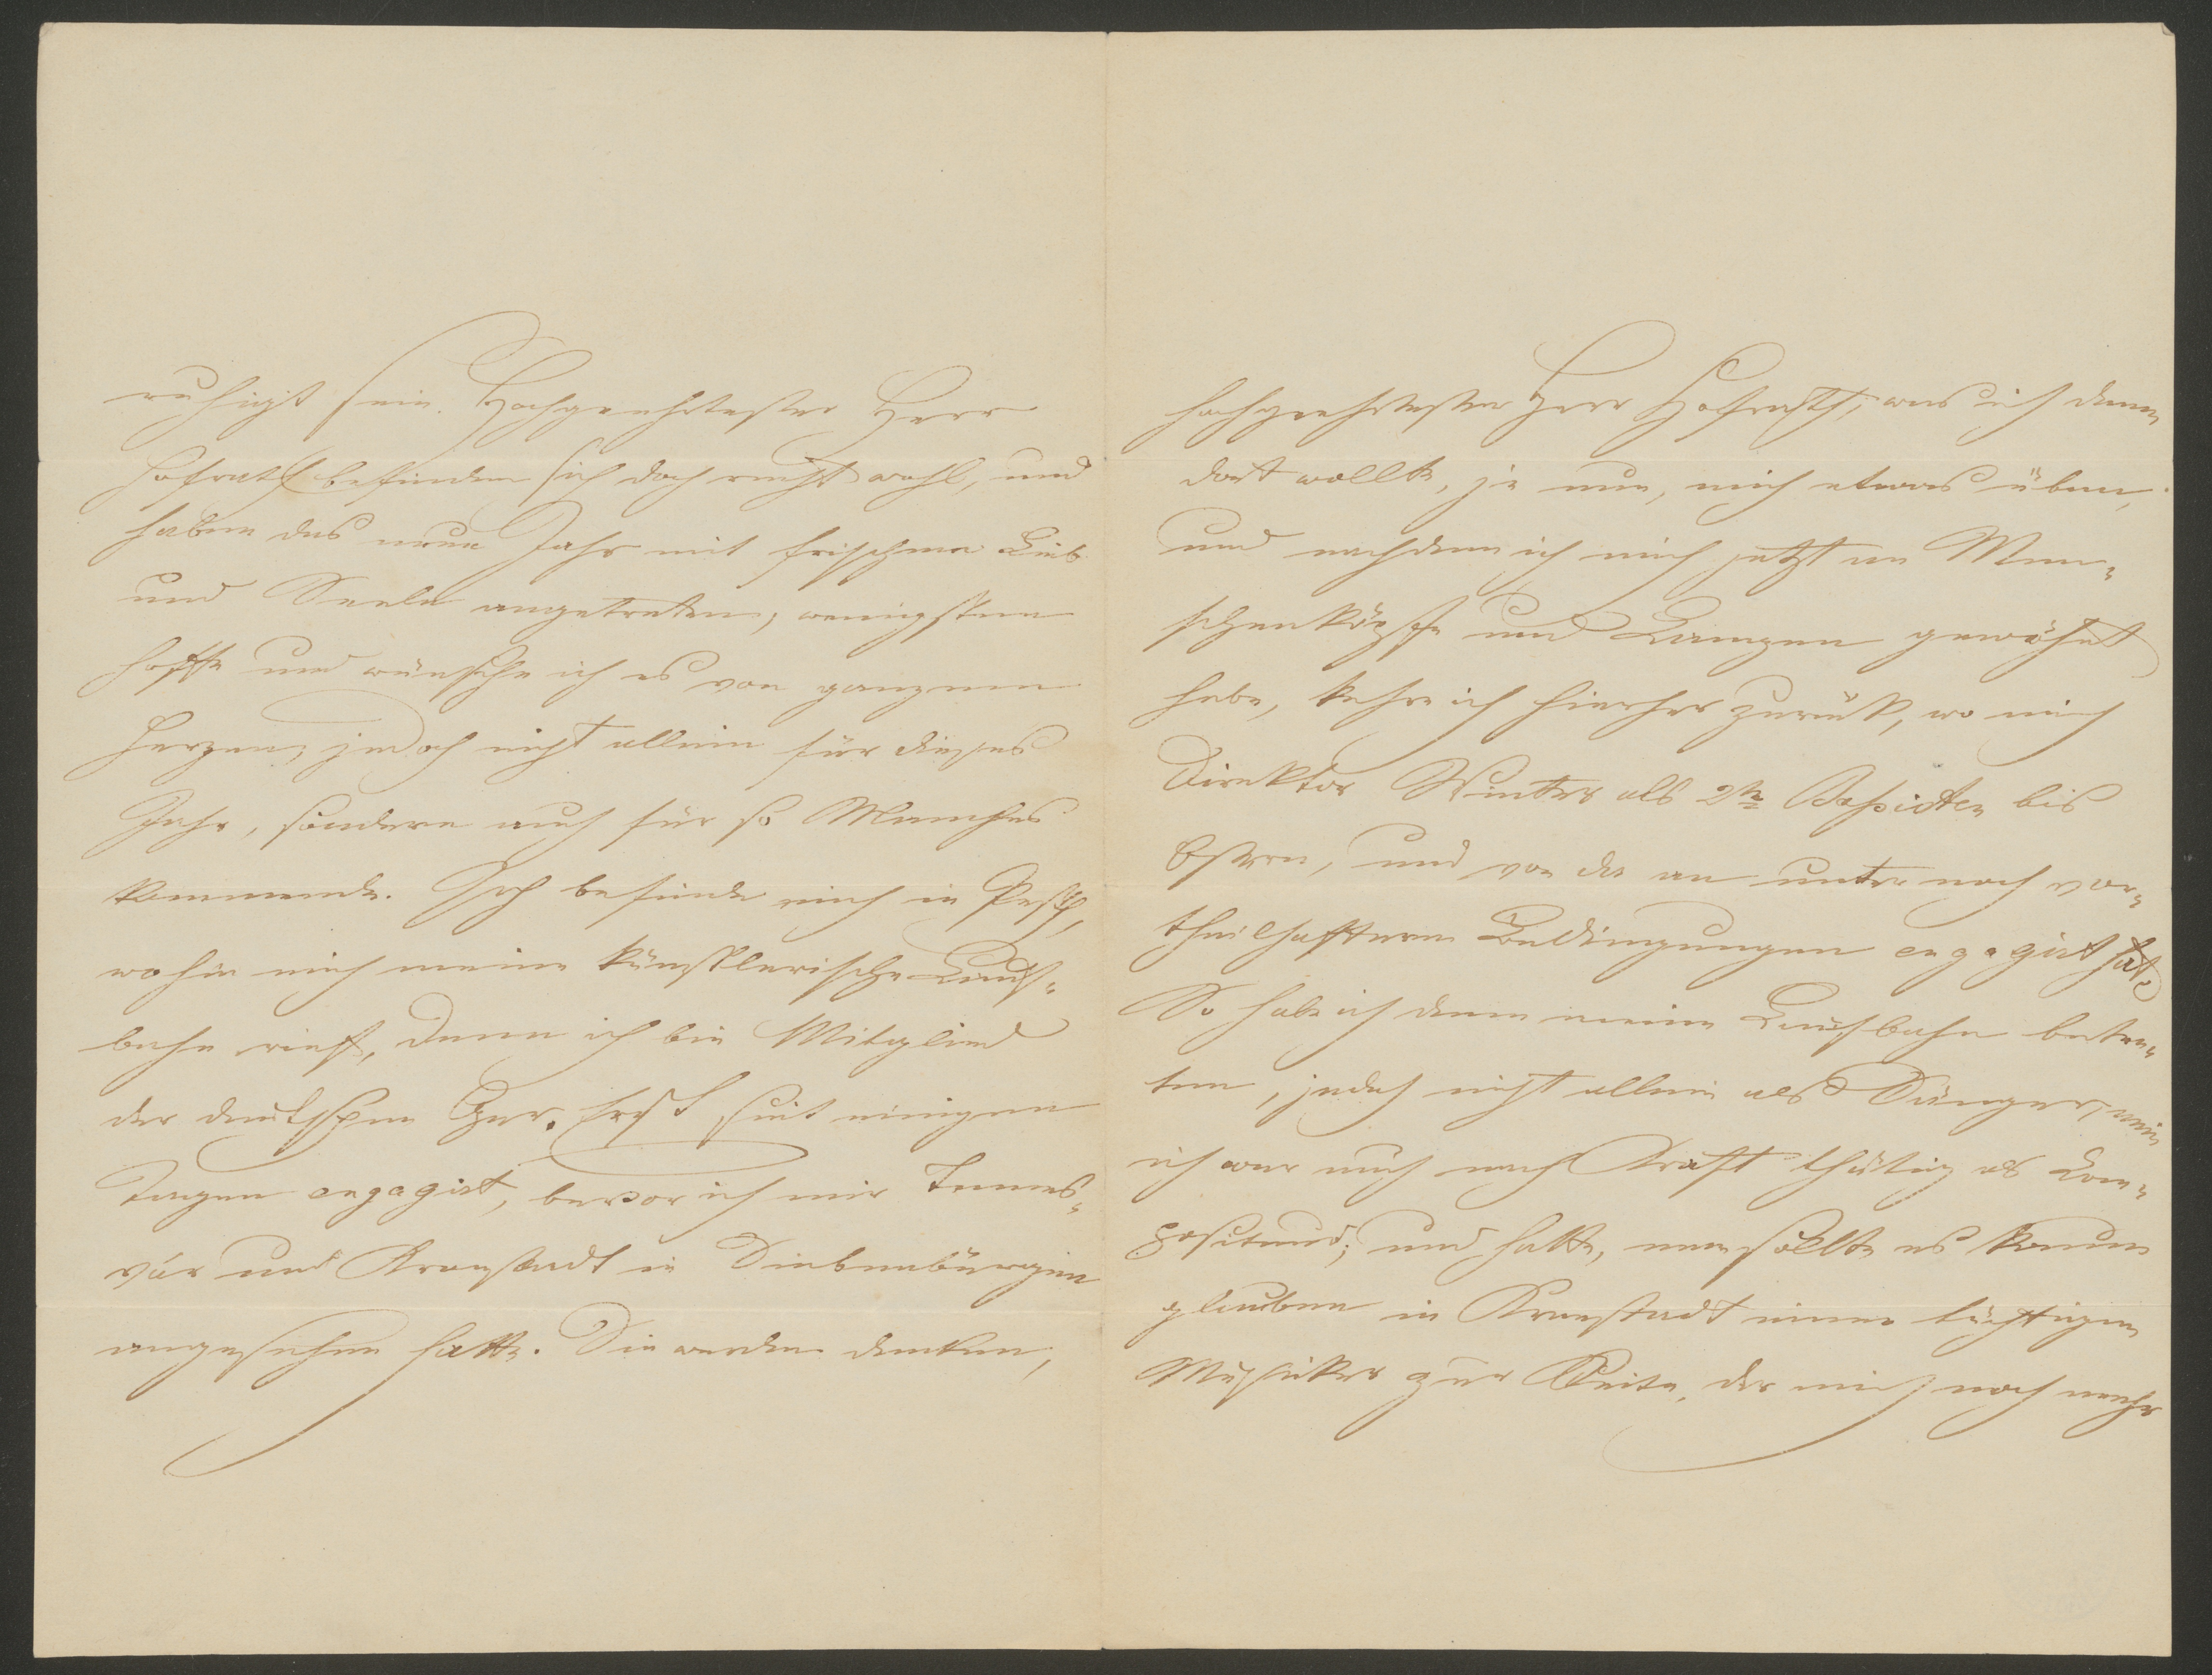 ruhigt sein. Hochgeehrtester Herr
Hofrath befinden sich doch recht wohl, und
haben das neue Jahr mit frischem Leib
und Seele angetreten, wenigstens
hoffe und wünsche ich es von ganzem
Herzen, jedoch nicht allein für dieses
Jahr, sondern auch für so Manches
kommende. Ich befinde mich in Pesth,
wohin mich meine künstlerische Lauf-
bahn rief, denn ich bin Mitglied
der deutschen Oper. Erst seit einigen
Tagen engagirt, bevor ich mir Temes-
vár und Kronstadt in Siebenbürgen
angesehen hatte. Sie werden denken,
hochgeehrtester Herr Hofrath, was ich denn
dort wollte, je nun, mich etwas üben,
und nachdem ich mich jetzt an Men-
schenköpfe und Lampen gewöhnt
habe, kehre ich hierher zurük, wo mich
Direktor Winter als 2ten Bassisten bis
Ostern, und von da an unter noch vor-
theilhafteren Bedingungen engagirt hat.
So habe ich denn meine Laufbahn betre-
ten, jedoch nicht allein als Sänger, nein
ich war auch nach Kraft thätig als Com-
positeur; und hatte, man sollte es kaum
glauben in Kronstadt einen tüchtigen
Musiker zur Seite, der mich noch mehr